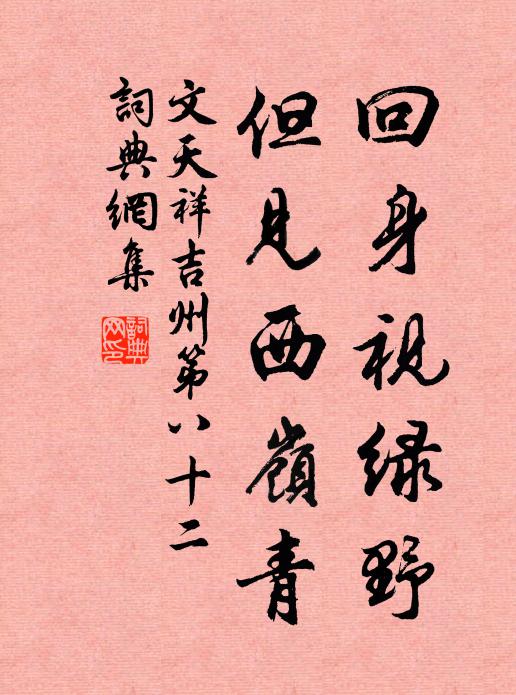 回身視绿野
但見西嶺青
文天祥吉州第八十二
詞典網集
詞典网印